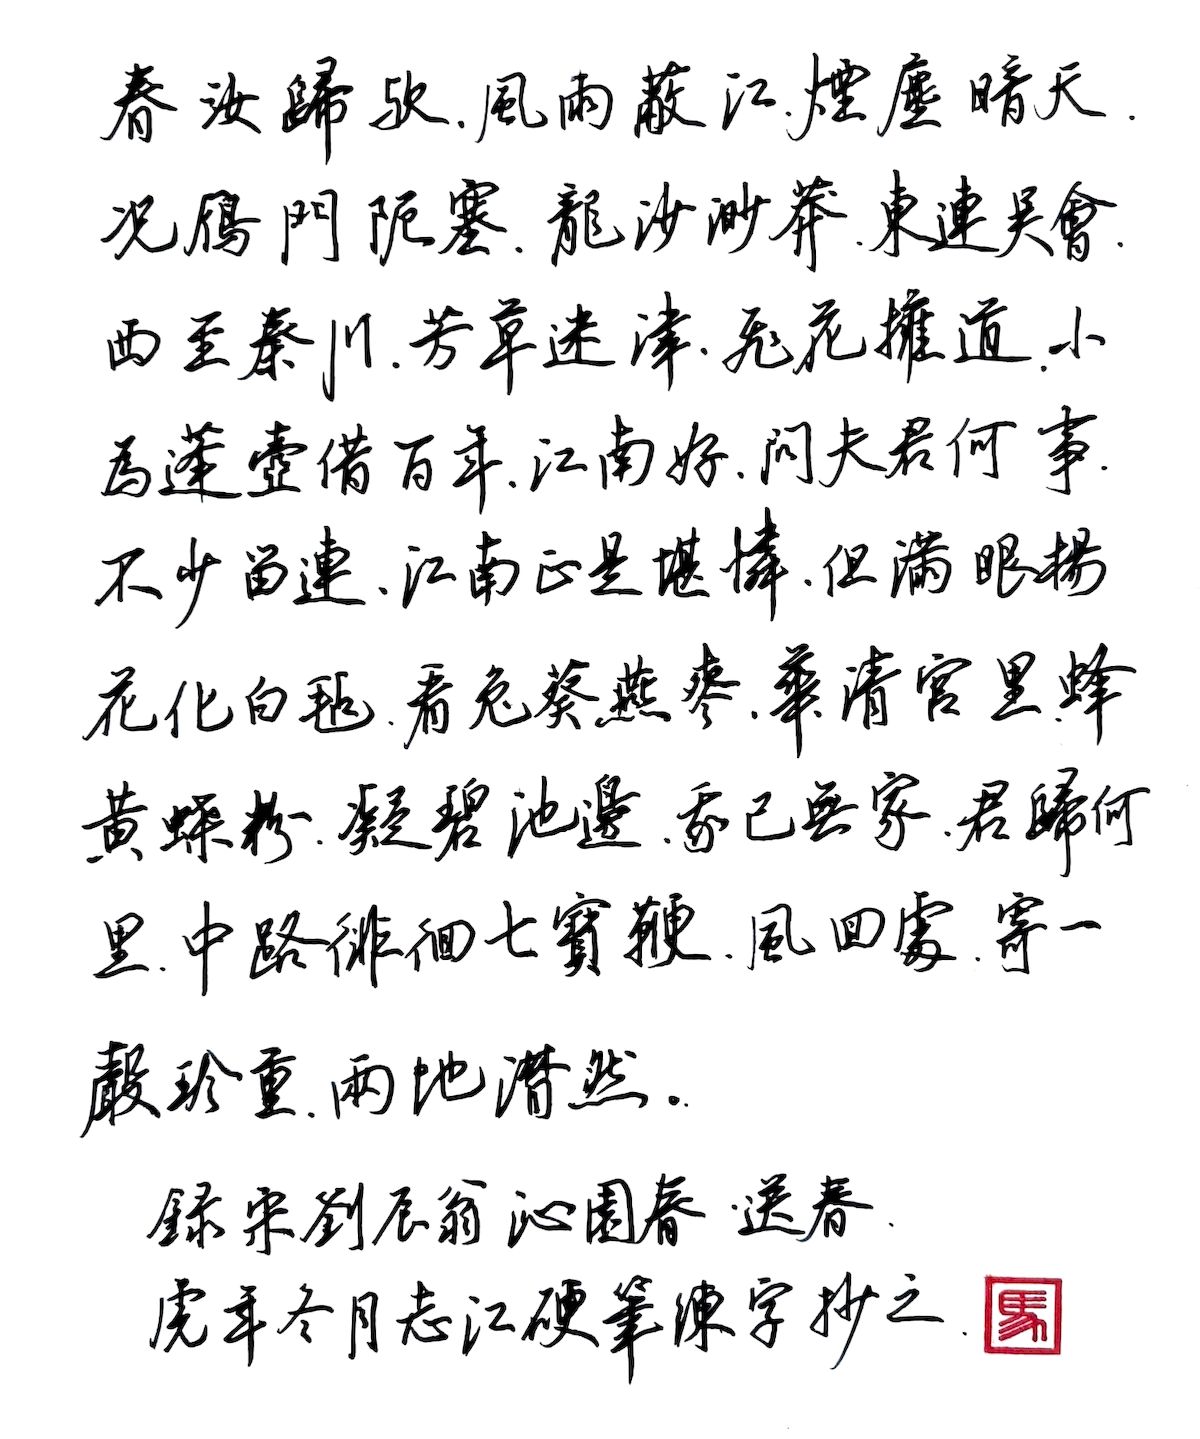 春汝歸歟.風雨蔽江.煙塵暗天.
況鴈門阨塞.龍沙渺莽.東連吳會.
西至秦川.芳草迷津.飛花擁道.小
為蓬壺借百年.江南好.問夫君何事.
不少留連.江南正是堪憐.但滿眼揚
花化白氈.看兔葵燕麥.華清宮里.蜂
黃蝶粉.凝碧池邊.我已無家.君歸何
里.中路徘徊七寶鞭.風回處.寄一
聲珍重.兩地潸然。
録宋劉辰翁沁園春·送春.
虎年冬月志江硬筆練字抄之.
馬